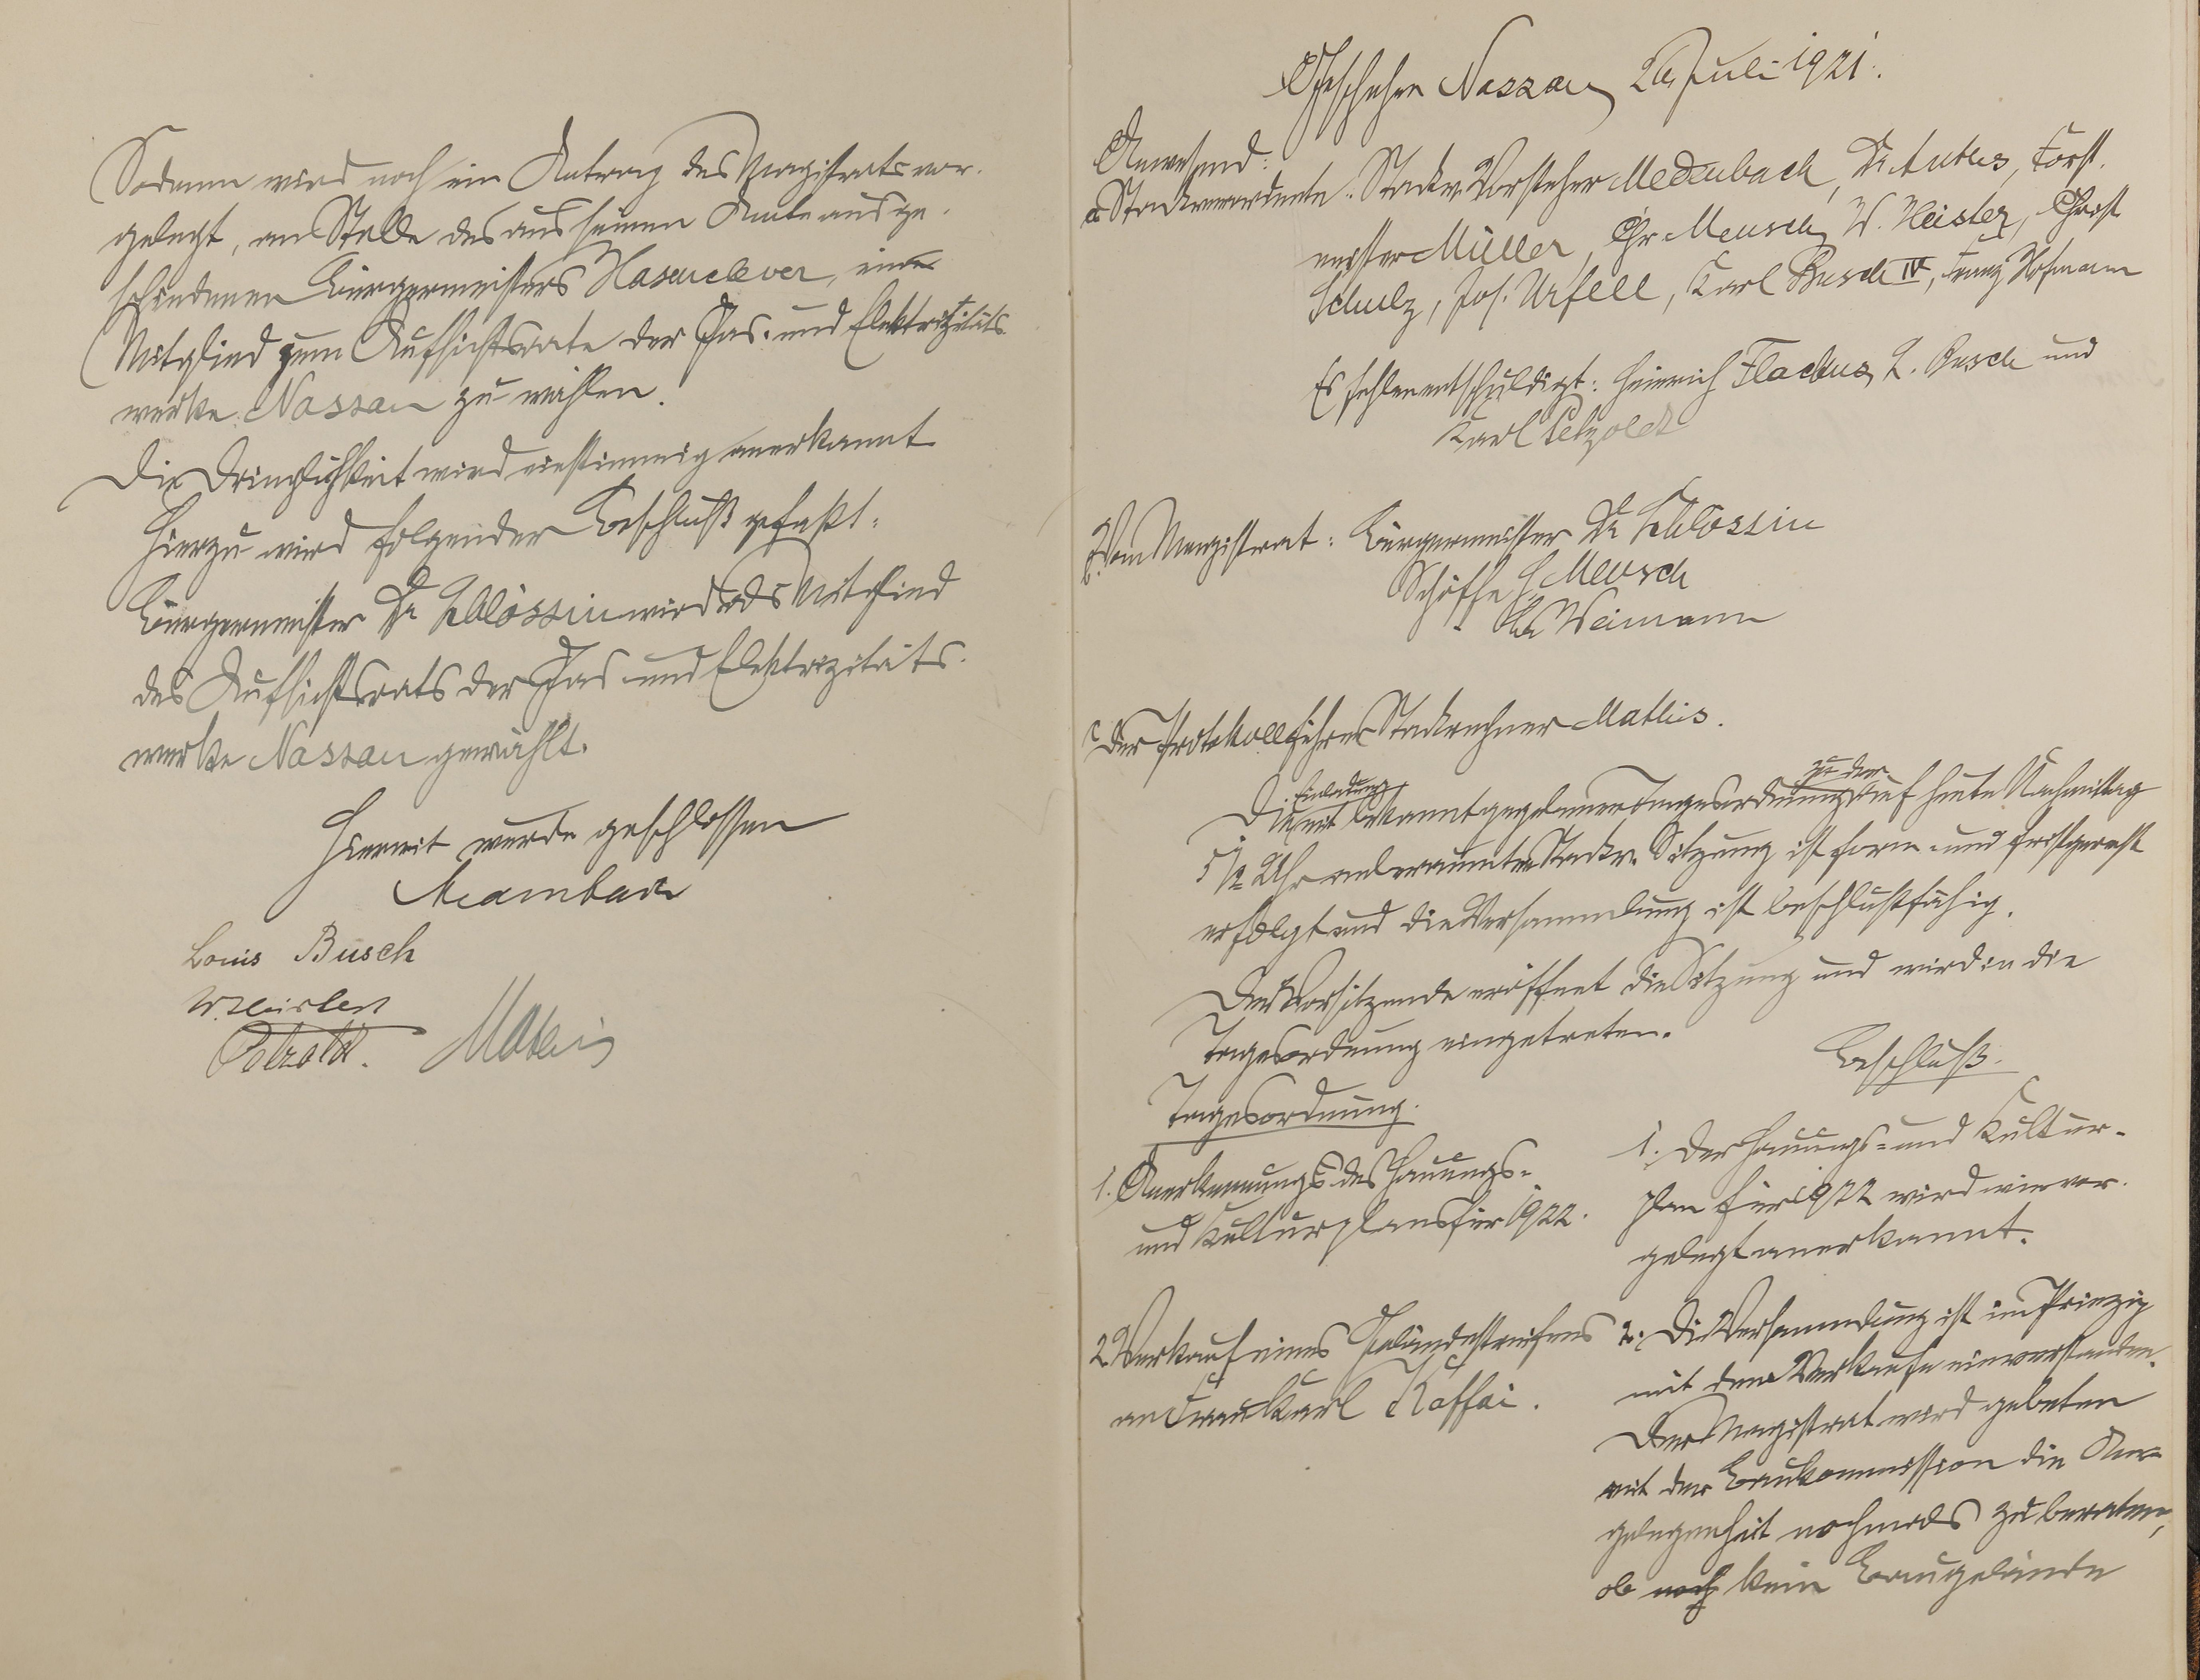 Sodann wird noch ein Antrag des Magistrats vor-
gelegt, an Stelle des aus seinem Amte ausge-
schiedenen Bürgermeisters Hasenclever, ein
Mitglied zum Aufsichtsrate der Gas- und Elektrizitäts
werke Nassau zu wählen.
Die Dringlichkeit wird einstimmig anerkannt
Hierzu wird folgender Beschluß gefaßt:
Bürgermeister Dr Schlössin wird als Mitglied
des Aufsichtsrats der Gas- und Elektrizitäts-
werke Nassau gewählt.
Hiermit wurde geschlossen
Louis Busch
W. Heisler
Petzold. Mathis
Geschehen Nassau, 26. Juli 1921.
Anwesend:
a Stadtverordnete: Stadtv. Vorsteher Medenbach, Dr Anthes, Forst-
meister Müller, Chr. Meusch, W. Heisler, Christ
Schulz, Jos. Urfell, Karl Busch IV, Franz Hofmann
Es fehlen entschuldigt: Heinrich Flackus, L. Busch und
Karl Petzold
b. Vom Magistrat: Bürgermeister Dr Schlössin
Schöffe H. Meusch
" Chr Weimann
c Der Protokollführer Stadtrechner Mathis.
Die mit Einladung bekanntgegebener Tagesordnung zu der auf heute Nachmittag
5 1/2 Uhr anberaumten Stadtv. Sitzung ist form- und fristgerecht
erfolgt und die Versammlung ist beschlußfähig.
Der Vorsitzende eröffnet die Sitzung und wird in die
Tagesordnung eingetreten.
Tagesordnung.
Beschluß.
1. Anerkennung des Hauungs-
und Kulturplans für 1922.
1. Der Hauungs- und Kultur-
plan für 1922 wird wie vor-
gelegt anerkannt.
2. Verkauf eines Geländestreifens
an Frau Karl Kaffai.
2. Die Versammlung ist im Prinzip
mit dem Verkaufe einverstanden.
Der Magistrat wird gebeten
mit der Baukommission die An-
gelegenheit nochmals zu beraten,
ob noch kein Baugelände